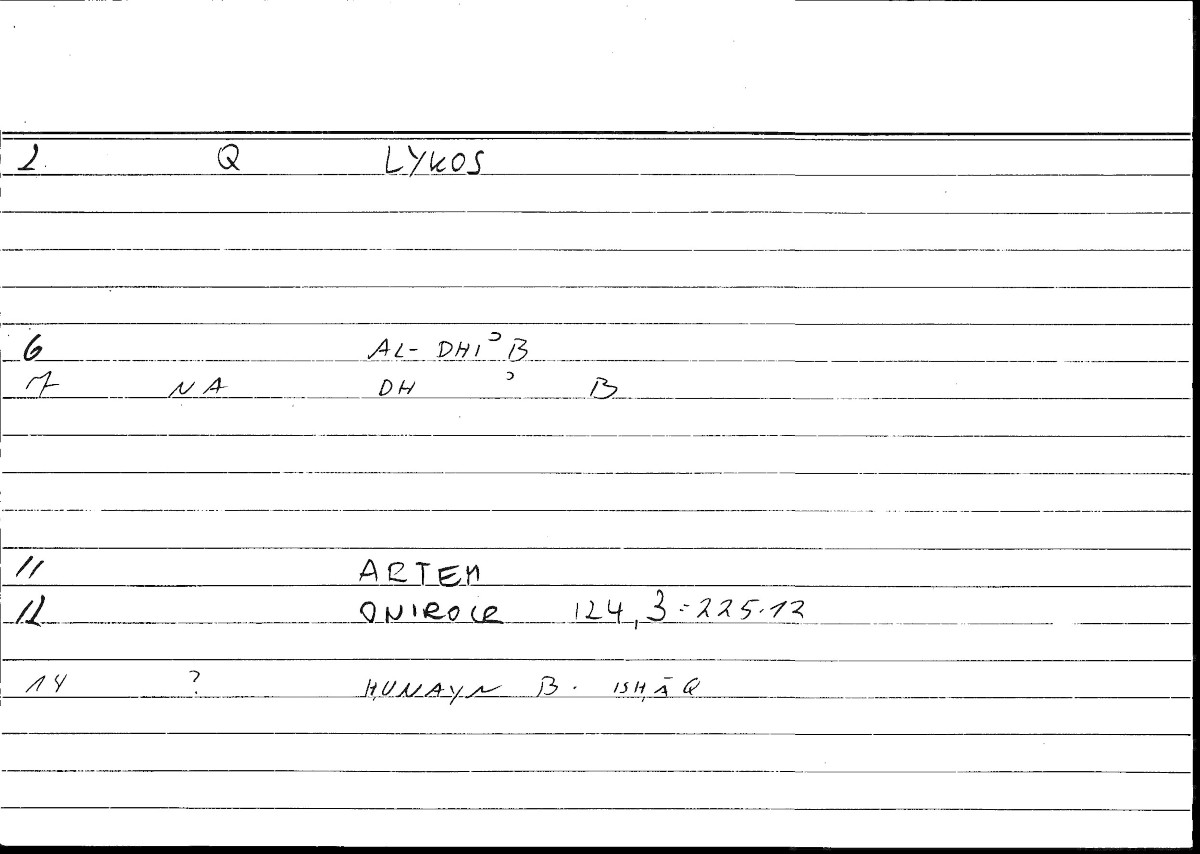 2. Q LYKOS
6 AL-DHIʾB
7 NA DH ʾ B
11 ARTEM
12 ONIROCR 124,3 = 225.12
14 ? ḤUNAYN B. ISḤĀQ